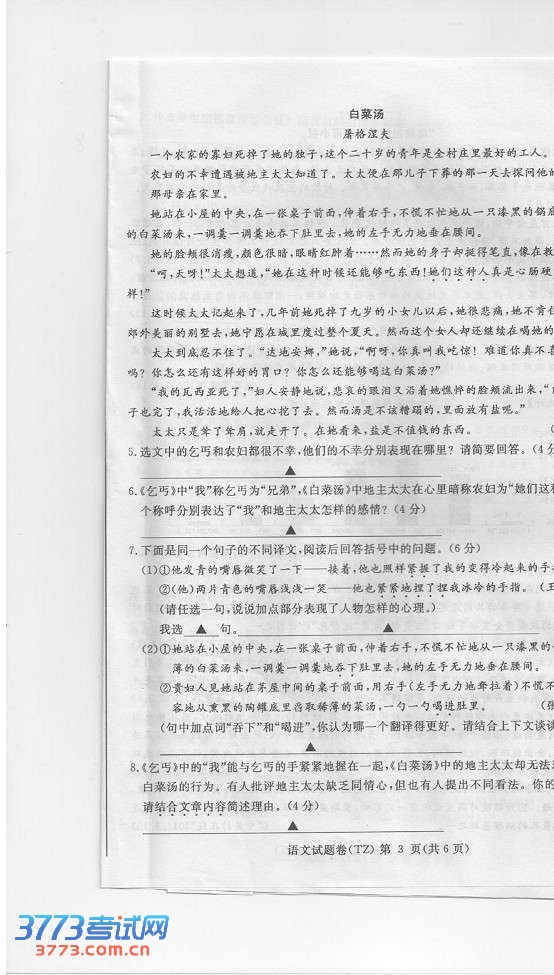 白菜汤
屠格涅夫
一个农家的寡妇死掉了她的独子，这个二十岁的青年是全村庄里最好的工人。
农妇的不幸遭遇被地主太太知道了。太太便在那儿子下葬的那一天去探问他的
那母亲在家里。
她站在小屋的中央，在一张桌子前面，伸着右手，不慌不忙地从一只漆黑的锅底
的白菜汤来，一调羹一调羹地吞下肚里去，她的左手无力地垂在腰间。
她的脸颊很消瘦，颜色很暗，眼睛红肿着……然而她的身子却挺得笔直，像在教
“呵，天呀！”太太想道，“她在这种时候还能够吃东西！她们这种人真是心肠硬
样！”
这时候太太记起来了，几年前她死掉了九岁的小女儿以后，她很悲痛，她不肯住
郊外美丽的别墅去，她宁愿在城里度过整个夏天。然而这个女人却还继续在喝她的
太太到底忍不住了。“达地安娜，”她说，“啊呀，你真叫我吃惊！难道你真不喜
吗？你怎么还有这样好的胃口？你怎么还能够喝这白菜汤？”
“我的瓦西亚死了，”妇人安静地说，悲哀的眼泪又沿着她憔悴的脸颊流出来，“
子也完了，我活活地给人把心挖了去。然而汤是不该糟蹋的，里面放有盐呢。”
太太只是耸了耸肩，就走开了。在她看来，盐是不值钱的东西。（
5．选文中的乞丐和农妇都很不幸，他们的不幸分别表现在哪里？请简要回答。（4分
▲
6．《乞丐》中“我”称乞丐为“兄弟”，《白菜汤》中地主太太在心里暗称农妇为“她们这种
个称呼分别表达了“我”和地主太太怎样的感情？（4分）
▲
7．下面是同一个句子的不同译文，阅读后回答括号中的问题。（6分）
（1）①他发青的嘴唇微笑了一下——接着，他也照样紧握了我的变得冷起来的手
②（他）两片青色的嘴唇浅浅一笑——他也紧紧地捏了捏我冰冷的手指。（王
（请任选一句，说说加点部分表现了人物怎样的心理。）
我选 ▲ 句。 ▲
（2）①她站在小屋的中央，在一张桌子前面，伸着右手，不慌不忙地从一只漆黑的
薄的白菜汤来，一调羹一调羹地吞下肚里去，她的左手无力地垂在腰间。
②贵妇人见她站在茅屋中间的桌子前面，用右手（左手无力地耷拉着）不慌不
容地从熏黑的陶罐底里舀取稀薄的菜汤，一勺一勺喝进肚里。（张
（句中加点词“吞下”和“喝进”，你认为哪一个翻译得更好。请结合上下文谈谈
▲
8．《乞丐》中的“我”能与乞丐的手紧紧地握在一起，《白菜汤》中的地主太太却无法
白菜汤的行为。有人批评地主太太缺乏同情心，但也有人提出不同看法。你的
请结合文章内容简述理由。（4分）
▲
语文试题卷（TZ）第 3 页（共 6 页）
3773考试网
3773.com.cn